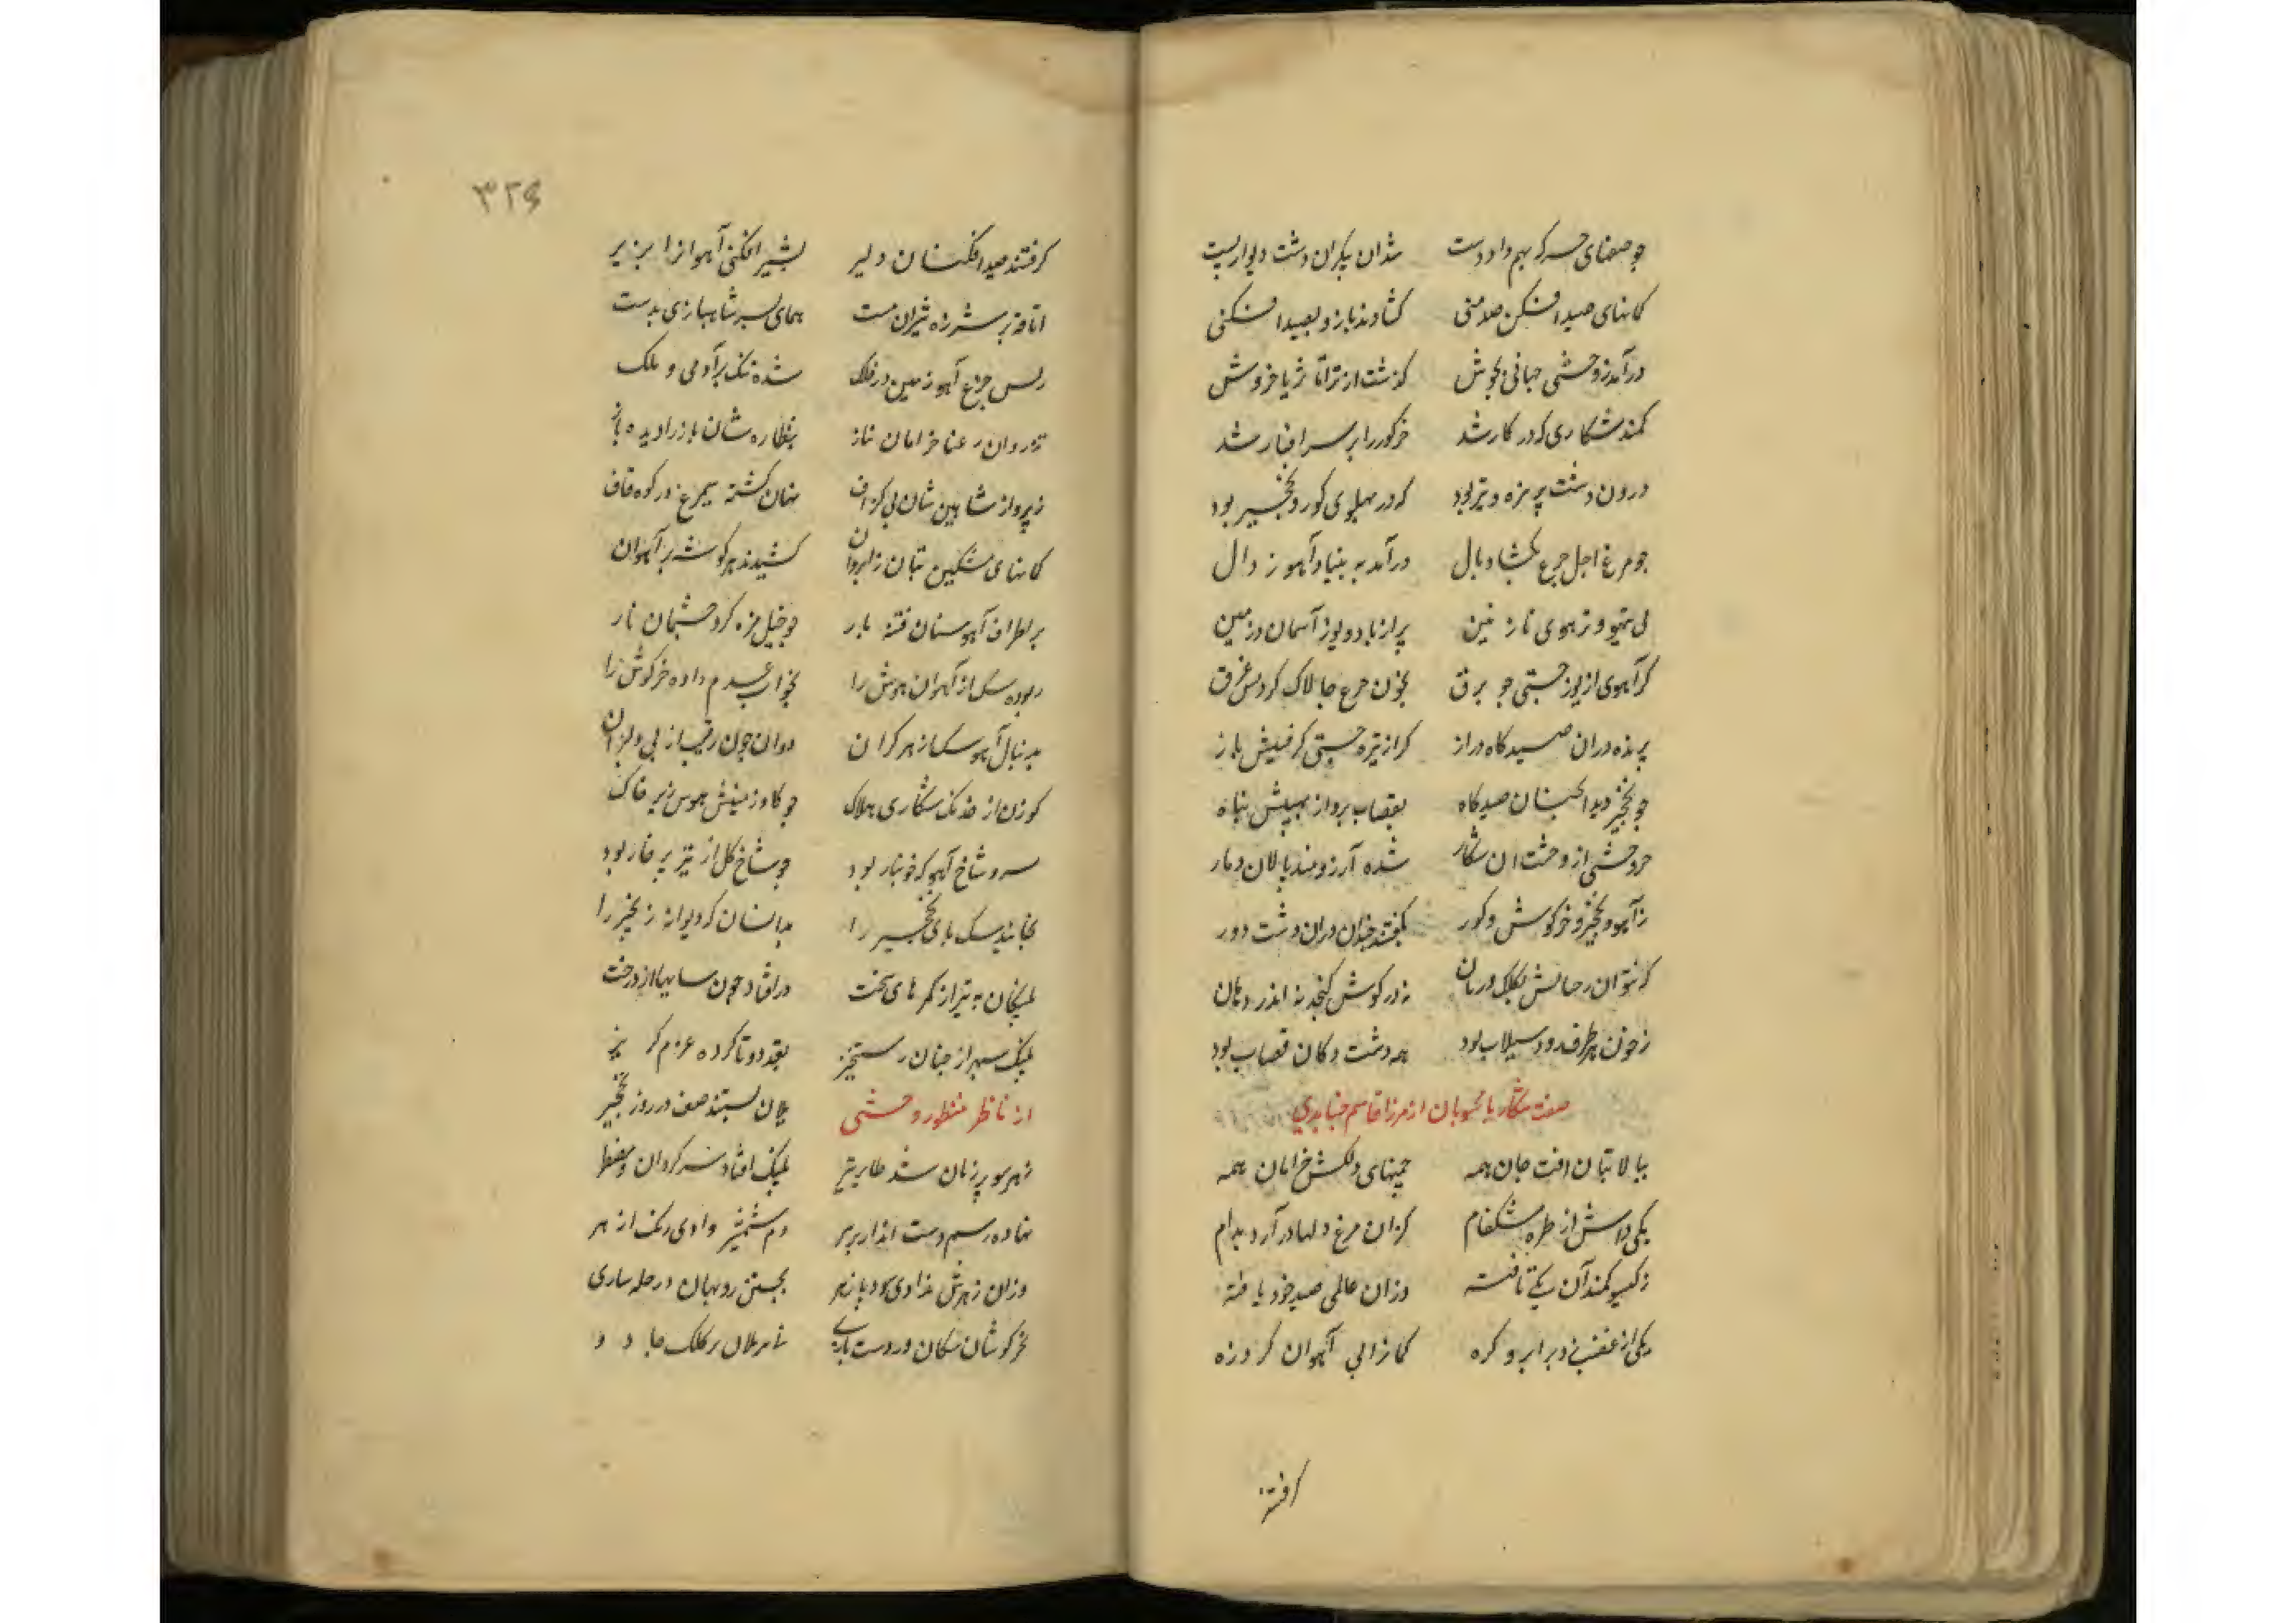 چو صفهای جرگه بهم داد دست شد ان پیکران دشت دیوار پست
کمانهای صید افکن صد منی کشادند بازو بصید افکنی
درآمد ز وحشی جهانی بجوش گذشت از ثری تا ثریا خروش
کمند شکاری که در کار شد خر کور را بر سر افسار شد
درون دشت پر نیزه و تیر بود که در پهلوی کور و نخچیر بود
چو مرغ اجل چرغ بکشاد بال درآمد به بنیاد آهو زوال
پی تیهو و آهوی نازنین پر از باز و یوز آسمان و زمین
کر آهوی از یوز جستی چو برق بخون چرغ چالاک کردیش غرق
پرنده دران صیدکاه دراز کر از تیر جستی کرفتیش باز
چو نخچیر دید انچنان صیدکاه بقصاب برد از نهیبش پناه
وحشی از وحشت ان شکار شده آرزومند پالان و بار
ز آهو و نخچیر و خرکوش و کور بکشتند چندان دران دشت دور
که نتوان حسابش بکلک و زبان نه در کوش کنجد نه اندر دهان
ز خون هر طرف رود سیلاب بود همه دشت دکان قصاب بود
صفت شکار با محبوبان از میرزا قاسم جنابدی
ببالا بتان افت جان همه چمنهای دلکش خرامان همه
یکی دامش از طره مشکفام کزان مرغ دلها درآرد بدام
ز کیسو کمند آن یکی تافته وزان عالمی صید خود یافته
یکی از غضب زد بر ابرو کره کمانرا پی آهوان کرد زه
کرفتند
۳۲۶
کرفتند صید افکنان دلیر بشیر افکنی آهوانرا بزیر
اتاقه بر سر زده شیران مست همای بسر شاهبازی بدست
ز بس چرغ آهو زمین در فلک شده تنک بر آدمی و ملک
تذروان رعنا خرامان ناز بنظاره شان باز را دیده باز
ز پرواز شاهین شان بی کزاف نهان کشته سیمرغ در کوه قاف
کمانهای مشکین بتان ز ابروان کشیدند هر کوشه بر آهوان
بر اطراف آهوستان فتنه بار چو خیل مژه کرد چشمان یار
ربوده سک از آهوان هوش را بخواب عدم داده خرکوش را
بدنبال آهو سک از هر کران دوان چون رقیب از پی دلبران
کوزن از خدنک شکاری هلاک چو کاو زمینش هوس زیر خاک
سر و شاخ آهو که خونبار بود چو شاخ کل از تیر پر خار بود
بخایند سک پای نخچیر را بدانسان که دیوانه زنجیر را
پلنکان به تیر از کمرهای سخت در افتاد چون سایها از درخت
پلنک سپهر از چنان رستخیز بقد دوتا کرده عزم کریز
از ناظر منظور وحشی یلان بستند صف در روز نخچیر
ز هر سو پر زنان شد طایر تیر پلنک افتاد سرکردان
نهاده رسم دست انداز بر ببر دم شمشیر دادی رنک از ببر
وزان زهرش ندادی سود پازهر بجستن روبهان در حیله سازی
بخرکوشان سکان در دست بازی